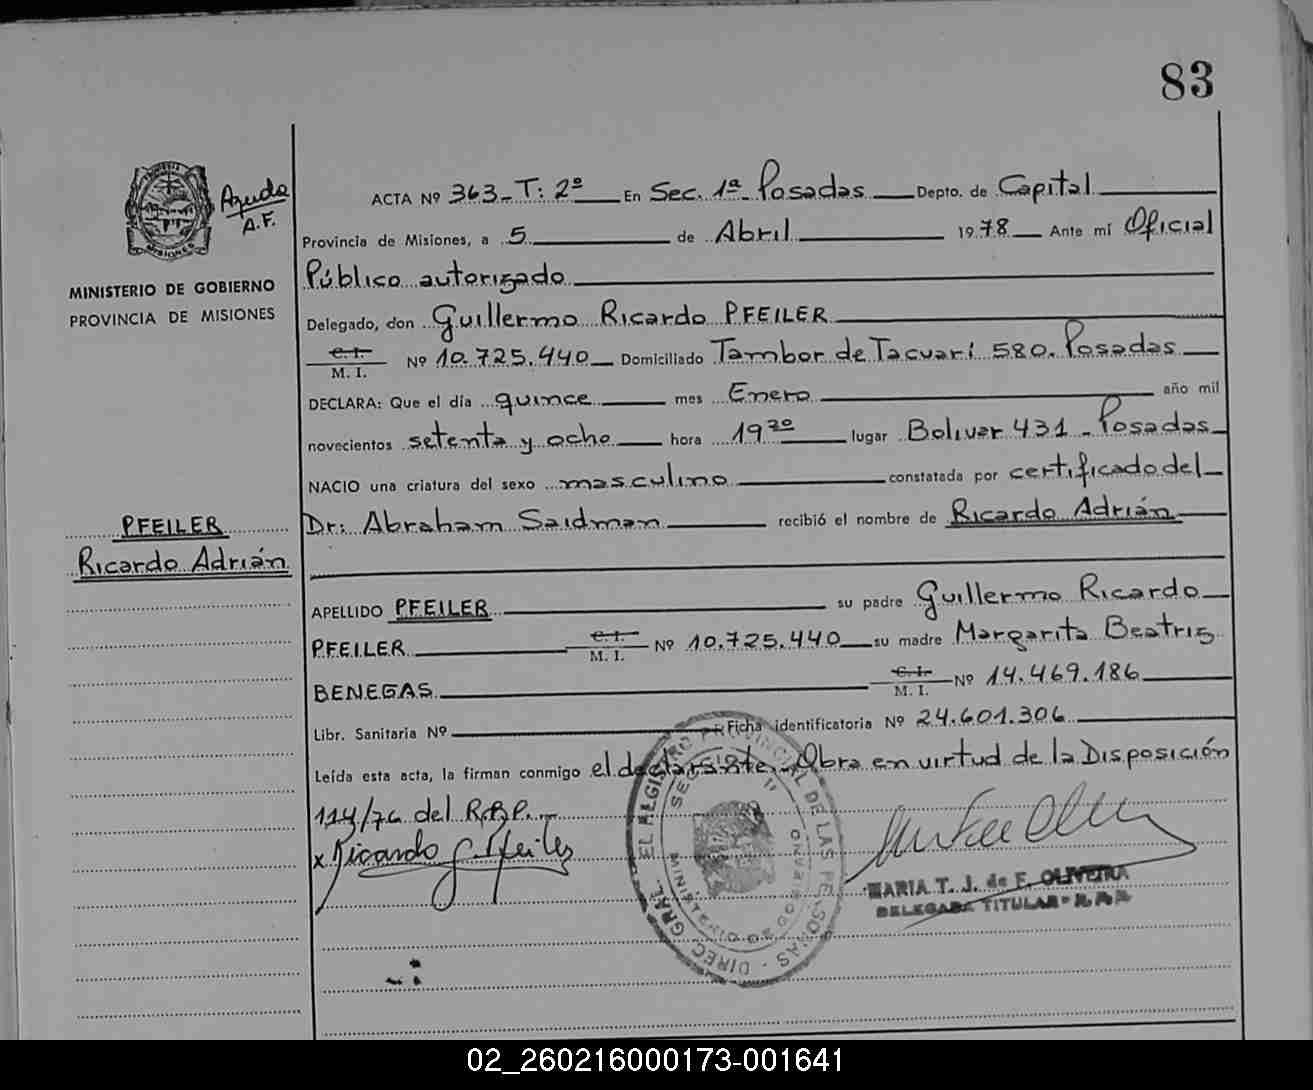 83
Ayuda
A.F.
MINISTERIO DE GOBIERNO
PROVINCIA DE MISIONES
ACTA Nº 363-T: 2º En Sec. 1ª Posadas Depto. de Capital
Provincia de Misiones, a 5 de Abril 1978 Ante mí Oficial
Público autorizado
Delegado, don Guillermo Ricardo PFEILER
C.I.
M. I. Nº 10.725.440 Domiciliado Tambor de Tacuarí 580. Posadas
DECLARA: Que el día quince mes Enero año mil
novecientos setenta y ocho hora 19 20 lugar Bolivar 431 - Posadas
NACIO una criatura del sexo masculino constatada por certificado del
Dr: Abraham Saidman recibió el nombre de Ricardo Adrián
PFEILER
Ricardo Adrián
APELLIDO PFEILER su padre Guillermo Ricardo
PFEILER C.I. M. I. Nº 10.725.440 su madre Margarita Beatriz
BENEGAS C.I. M. I. Nº 14.469.186
Libr. Sanitaria Nº Ficha identificatoria Nº 24.601.306
Leída esta acta, la firman conmigo el declarante. Obra en virtud de la Disposición
114/76 del R.P.P.-
x Ricardo G. Pfeiler
MARIA T. J. de F. OLIVEIRA
DELEGADA TITULAR - R.P.P.
DIREC. GRAL. EL REGISTRO PROVINCIAL DE LAS PERSONAS
MINISTERIO DE GOBIERNO
02_260216000173-001641